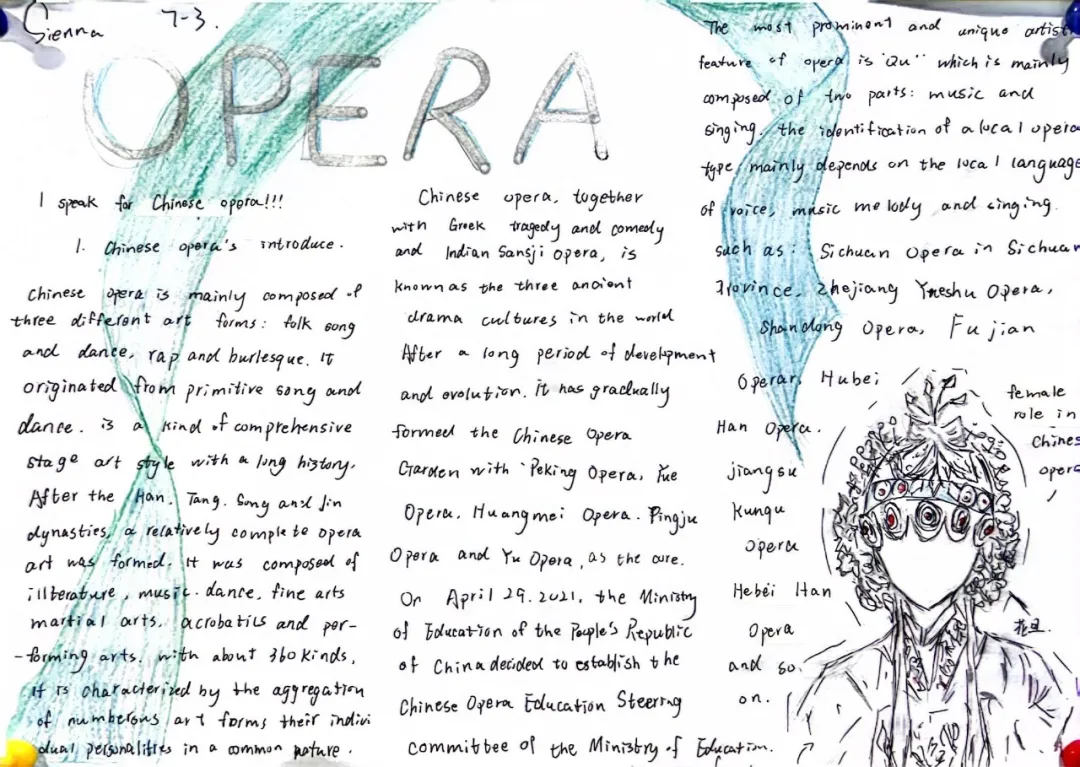 Sienna
7-3.
OPERA
I speak for Chinese opera!!!
1. Chinese opera's introduce.
Chinese opera is mainly composed of
three different art forms: folk song
and dance, rap and burlesque. It
originated from primitive song and
dance. is a kind of comprehensive
stage art style with a long history.
After the Han. Tang. Song and Jin
dynasties, a relatively complete opera
art was formed. It was composed of
illterature, music. dance, fine arts
martial arts. acrobatics and per-
-forming arts. with about 360 kinds.
It is characterized by the aggregation
of numberous art forms their indivi
dual personalities in a common nature.
Chinese opera, together
with Greek tragedy and comedy
and Indian Sansji Opera, is
known as the three ancient
drama cultures in the world
After a long period of development
and evolution. It has gradually
formed the Chinese Opera
Garden with "Peking Opera, Yue
Opera, Huangmei Opera. Pingju
Opera and Yu Opera, as the core.
On April 29. 2021, the Ministry
of Education of the People's Republic
of China decided to establish the
Chinese Opera Education Steering
committee of the Ministry of Education.
The most prominent and unique artist
feature of opera is "Qu" which is mainly
composed of two parts: music and
singing. the identification of a local opera
type mainly depends on the local language
of voice, music melody and singing.
such as: Sichuan Opera in Sichuan
Province, Zhejiang Yueshu Opera,
Shandong Opera, Fujian
Opera, Hubei
Han Opera.
jiangsu
Kunqu
opera
Hebei Han
Opera
and so
on.
female
role in
Chines
opera
花旦.